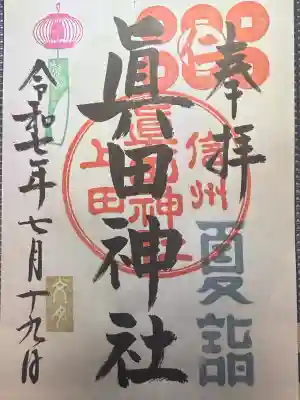 奉拝
夏詣
眞田神社
信州
上田
眞田神社
令和七年七月十九日